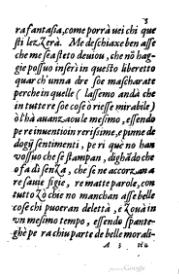 3
ra fantasia, come porrà uei chi que
sti lezerà. Me deschiaxe ben asse
che me sea steto deuiou, che nò hag-
gie possuo inserì in questo libereto
quarch'unna dre soe mascharate
perche in quelle (lassemo andà che
in tutte re soe cose ò riesse mirabile)
ò l'ha auanzaou le mesimo, essendo
per re inuentioin rerissime, e pume de
dogij sentimenti, pe ri què no han
vossuo che se stampan, dighãdo che
o fa di senza, che se ne accorzan a
resauie figie, re matte parole, con
tutto zò che no manchan asse belle
cose chi puoeran deletà, e zouà in
vn mesimo tempo, essendo spante-
ghè pe ra chiu parte de belle morali-
A 3 tie